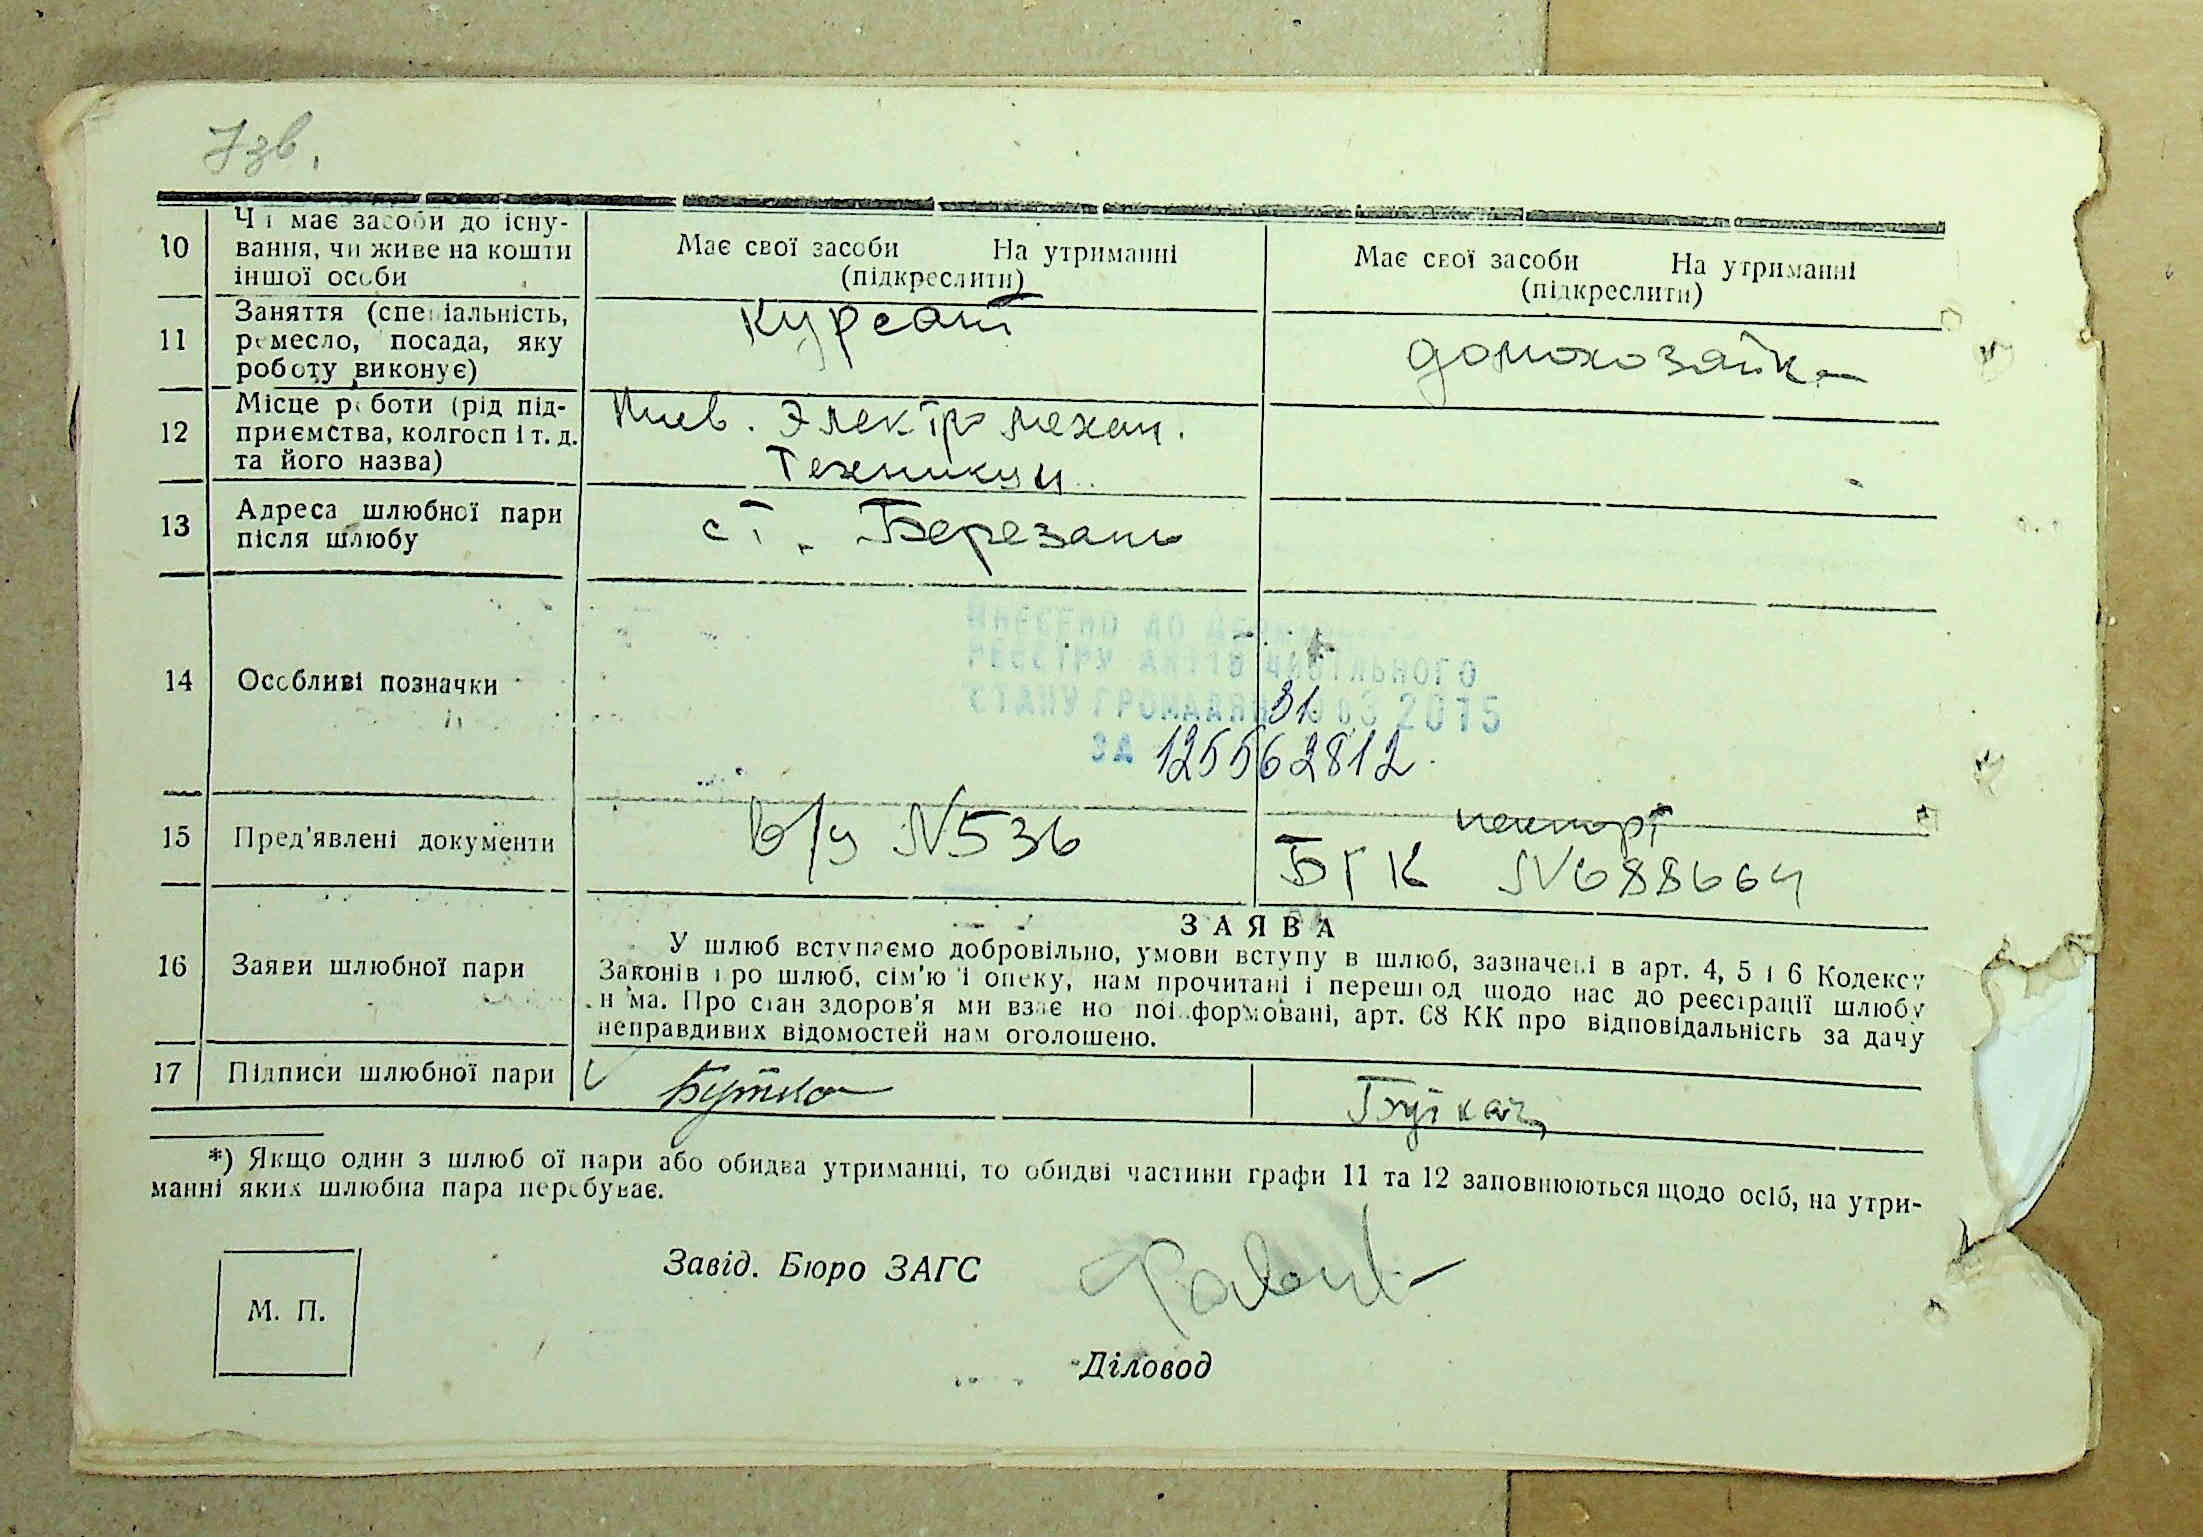 7 зв.
10
Чи має засоби до існу-
вання, чи живе на кошти
іншої особи
Має свої засоби На утриманні
(підкреслити)
Має свої засоби На утриманні
(підкреслити)
11
Заняття (спеціальність,
ремесло, посада, яку
роботу виконує)
курсант
домохозяйка
12
Місце роботи (рід під-
приємства, колгосп і т. д.
та його назва)
Киев. Электромехан.
Техникум
13
Адреса шлюбної пари
після шлюбу
ст. Березань
14
Особливі позначки
ВНЕСЕНО ДО ДЕРЖАВНОГО
РЕЄСТРУ АКТІВ ЦИВІЛЬНОГО
СТАНУ ГРОМАДЯН 31 03 2015
ЗА 125562812.
15
Пред'явлені документи
в/у N536
паспорт
БГК N688664
16
Заяви шлюбної пари
ЗАЯВА
У шлюб вступаємо добровільно, умови вступу в шлюб, зазначені в арт. 4, 5 і 6 Кодексу
Законів про шлюб, сім'ю і опеку, нам прочитані і перешкод щодо нас до реєстрації шлюбу
нема. Про стан здоров'я ми взаємно поінформовані, арт. 68 КК про відповідальність за дачу
неправдивих відомостей нам оголошено.
17
Підписи шлюбної пари
Бутко
*) Якщо один з шлюбної пари або обидва утриманці, то обидві частини графи 11 та 12 заповнюються щодо осіб, на утри-
манні яких шлюбна пара перебуває.
М. П.
Завід. Бюро ЗАГС
Діловод